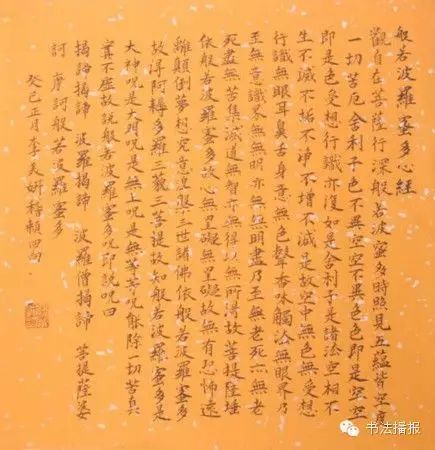 般若波羅蜜多心經
觀自在菩薩行深般若波蜜多時照見五蘊皆空度
一切苦厄舍利子色不異空空不異色色即是空空
即是色受想行識亦復如是舍利子是諸法空相不
生不滅不垢不淨不增不減是故空中無色無受想
行識無眼耳鼻舌身意無色聲香味觸法無眼界乃
至無意識界無無明亦無無明盡乃至無老死亦無老
死盡無苦集滅道無智亦無得以無所得故菩提薩埵
依般若波羅蜜多故心無罣礙無罣礙故無有恐怖遠
離顛倒夢想究竟涅槃三世諸佛依般若波羅蜜多
故得阿耨多羅三藐三菩提故知般若波羅蜜多是
大神咒是大明咒是無上咒是無等等咒能除一切苦真
實不虛故說般若波羅蜜多咒即說咒曰
揭諦揭諦 波羅揭諦 波羅僧揭諦 菩提薩婆
訶 摩訶般若波羅蜜多
癸巳正月李
书法播报